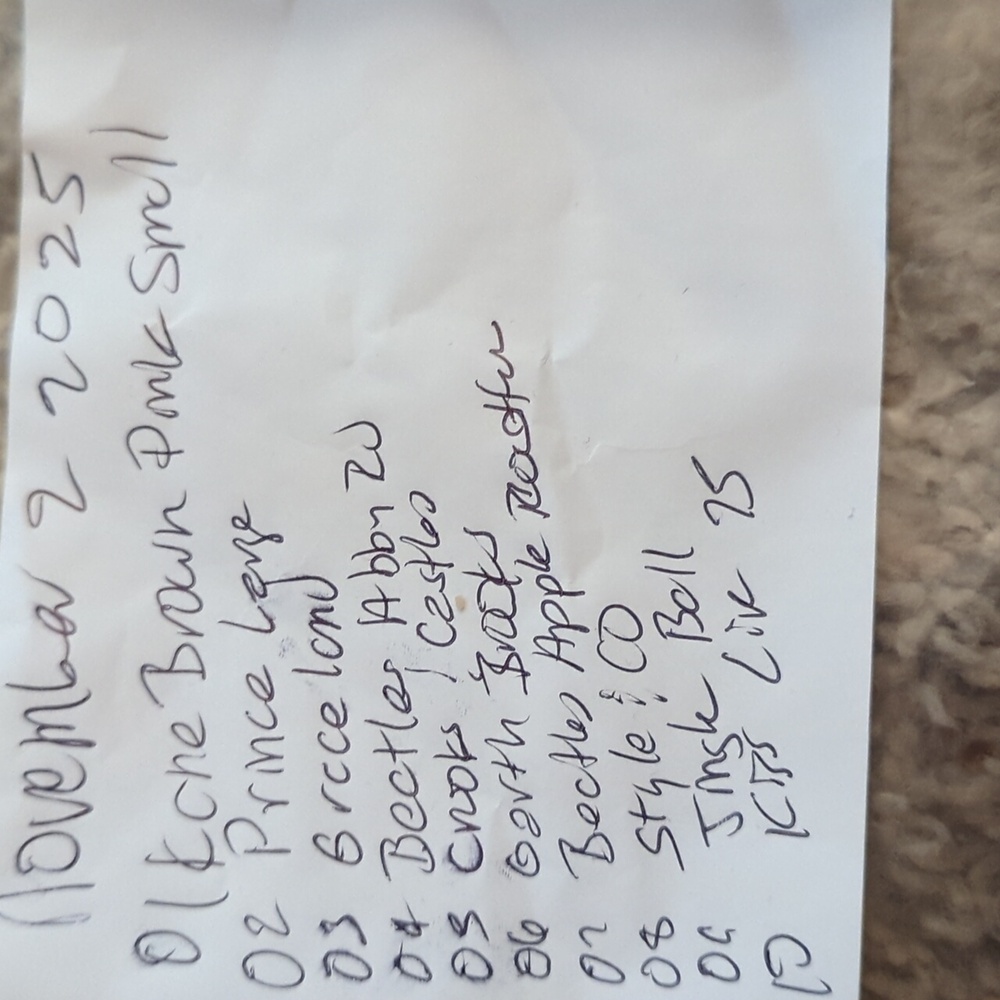 November 2 2025
01 Kane Brown Pink Small
02 Prince Large
03 Graceland
04 Beatles Abby RD
05 Crooks / Castles
06 Garth Brooks
07 Beatles Apple
08 Style: CO
09 Jingle Ball
10 KIIS Live 25